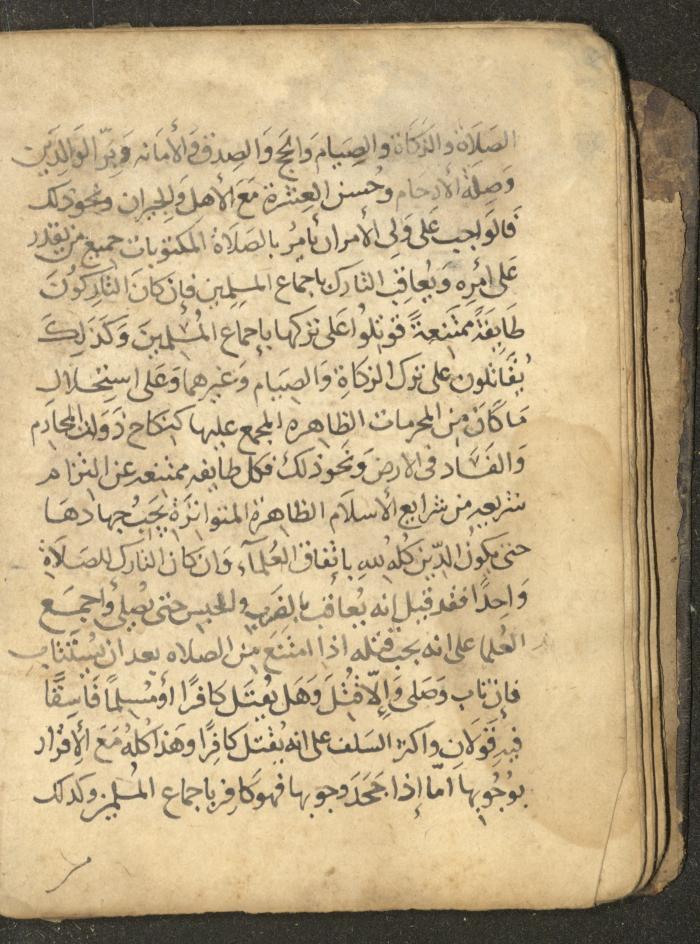 الصَلَاة والزكَاة والصِيَام وَالحج وَالصِدق وَالأمَانه وَبِرّ الوَالِدَين
وَصِلَة الأرحَام وحُسن العِشرَة مَعَ الأهل وَالجيران ونحو ذلك
فَالوَاجب عَلى وَلى الأمر ان يَأمُر بالصَلَاة المكتوبَات جميع من يقدر
عَلى أمْرِه وَيُعاقب التارك باجماع المسلمين فإن كَانَ التَاركُونَ
طَايِفَةً ممتَنعةً قوتلُوا عَلى تركها بإجماع المُسْلمينَ وَكَذَلِكَ
يُقَاتلون عَلى ترك الزكَاةِ وَالصِيَام وَغيرهما وَعَلى استِحْلال
مَا كَانَ مِن المحرمات الظاهره المجمع عليها كنكاح ذوات المحارم
وَالفسَاد فى الارض وَنحو ذلك فكل طايفه ممتنعه عن التزام
شريعه من شرايع الأسلَام الظاهرة المتواترَة يجَبُ جهادهَا
حتى يكونُ الدِّين كُله لله باتفاق العُلمآء وَان كان التارك للصَلَاة
وَاحِدًا فقد قيل إنه يُعاقب بالضرب والحبس حتى يُصلى وَاجمَع
العُلما على انه يجب قتله اذا امتنَعَ من الصلاه بعد ان يُسْتَتاب
فإن تاب وَصَلى وَإلّا قُتلَ وَهَل يُقتَل كافرًا أو مُسِلمًا فَاسقًا
فيهِ قَولَان واكثر السَلف على انه يُقتل كافِرًا وهَذا كُلهُ مَعَ الأِقرار
بوُجُوبها امّا إذا جحَدَ وجوبها فهو كَافِر باجماع المُسْلمين وكدلك